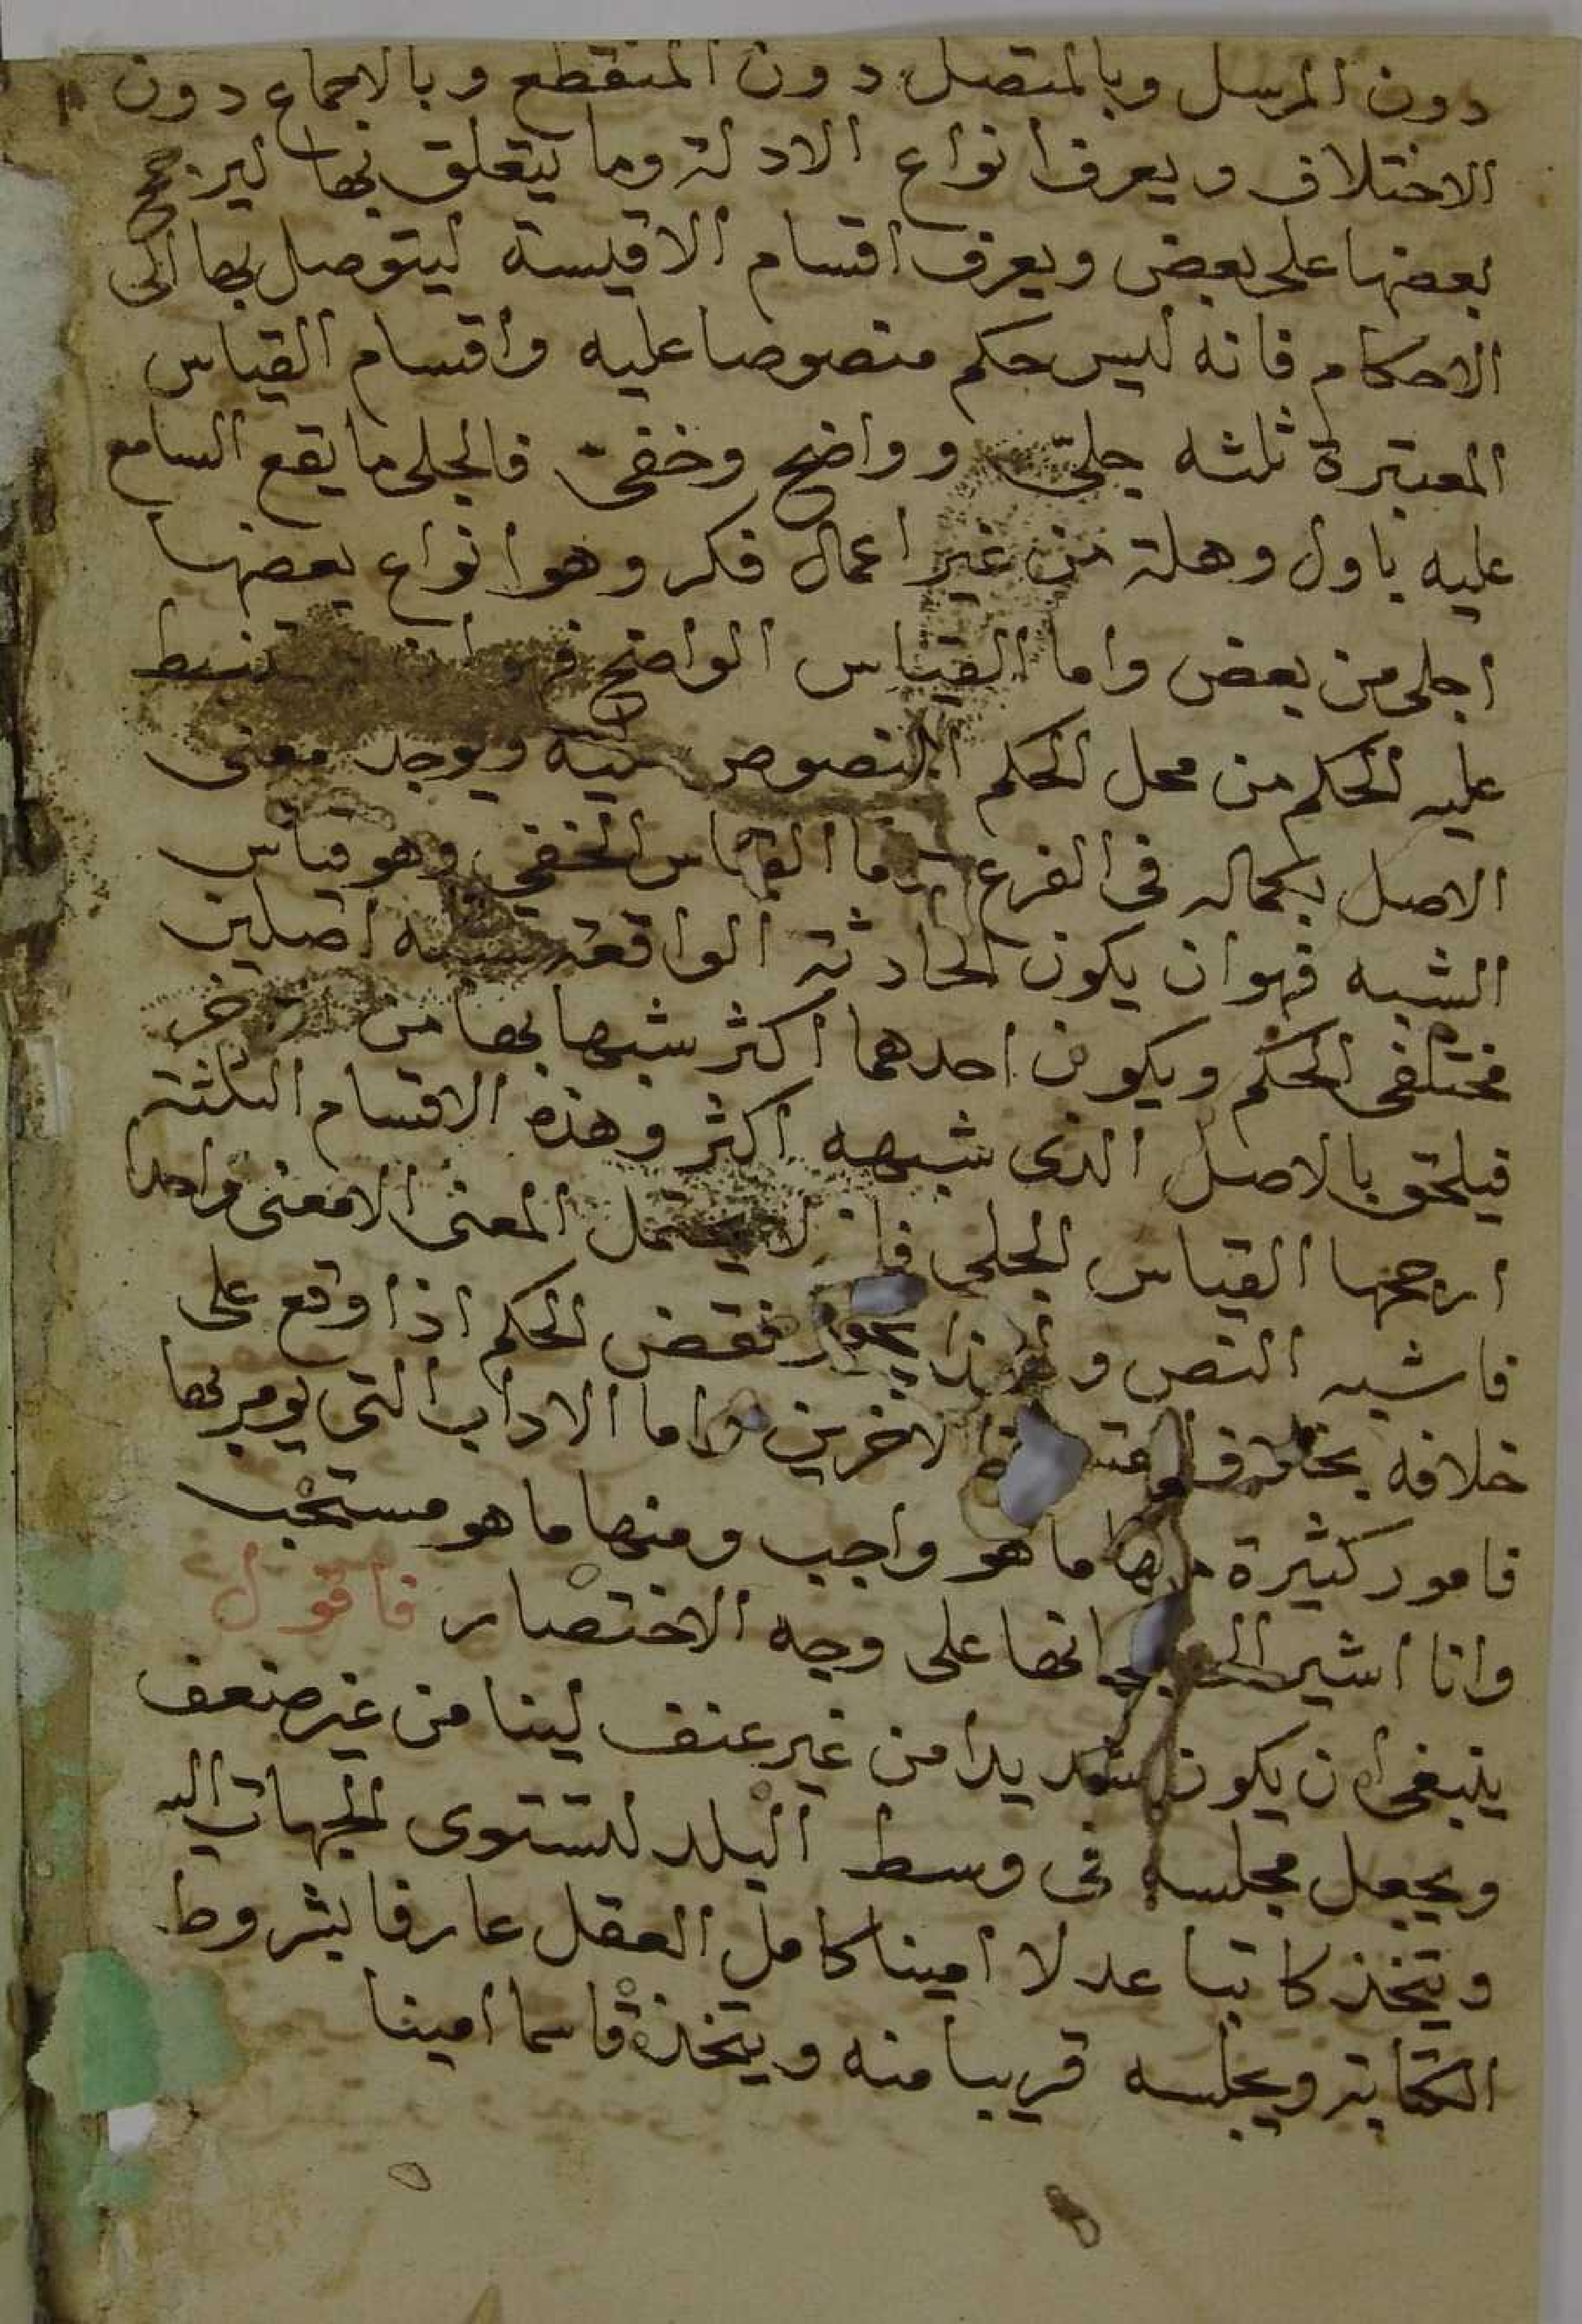 دون المرسل وبالمتصل دون المنقطع وبالاجماع دون
الاختلاف ويعرف انواع الادلة وما يتعلق بها ليرجح
بعضها على بعض ويعرف اقسام الاقيسة ليتوصل بها الى
الاحكام فانه ليس حكم منصوصا عليه واقسام القياس
المعتبرة ثلثه جلىّ وواضح وخفىّ فالجلى ما يقع السامع
عليه باول وهلة من غير اعمال فكر وهو انواع بعضها
اجلى من بعض واما القياس الواضح فهو ان
عليه الحكم من محل الحكم المنصوص عليه ويوجد معنى
الاصل بكماله فى الفرع واما القياس الخفي وهو قياس
الشبه فهو ان يكون الحادثة الواقعة اصلين
مختلفى الحكم ويكون احدهما اكثر شبها بها من الاخر
فيلحق بالاصل الذى شبهه اكثر وهذه الاقسام الثلثة
ارجحها القياس الجلى لا يحتمل المعنى الا معنى واحدا
فاشبه النص ولهذا يجوز نقض الحكم اذا وقع على
خلافه بخلاف الاخرين واما الاداب التى يومر بها
فامور كثيرة منها ما هو واجب ومنها ما هو مستحب
وانا اشير الى على وجه الاختصار فاقول
ينبغى ان يكون شديدا من غير عنف لينا من غير ضعف
ويجعل مجلسه فى وسط البلد لتستوى الجهات اليه
ويتخذ كاتبا عدلا امينا كامل العقل عارفا بشروط
الكتابة ويجلسه قريبا منه ويتخذ قاسما امينا